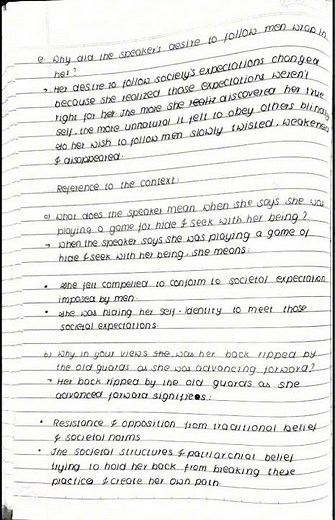 e) Why did the speaker's desire to follow men wrap in
her?
→ Her desire to follow society's expectations changed
because she realized those expectations weren't
right for her. The more she discovered her true
self, the more unnatural it felt to obey others blindly
so her wish to follow men slowly twisted, weakened
& disappeared.
Reference to the context:
a) What does the speaker mean when she says she was
playing a game for hide & seek with her being?
→ When the speaker says she was playing a game of
hide & seek with her being, she means:
• She felt compelled to conform to societal expectation
imposed by men
• She was hiding her self-identity to meet those
societal expectations
b) Why in your views she was her back ripped by
the old guards as she was advancing forward?
→ Her back ripped by the old guards as she
advanced forward signifies:
• Resistance & opposition from traditional belief
& societal norms
• The societal structures & patriarchial belief
trying to hold her back from breaking these
practice & create her own path